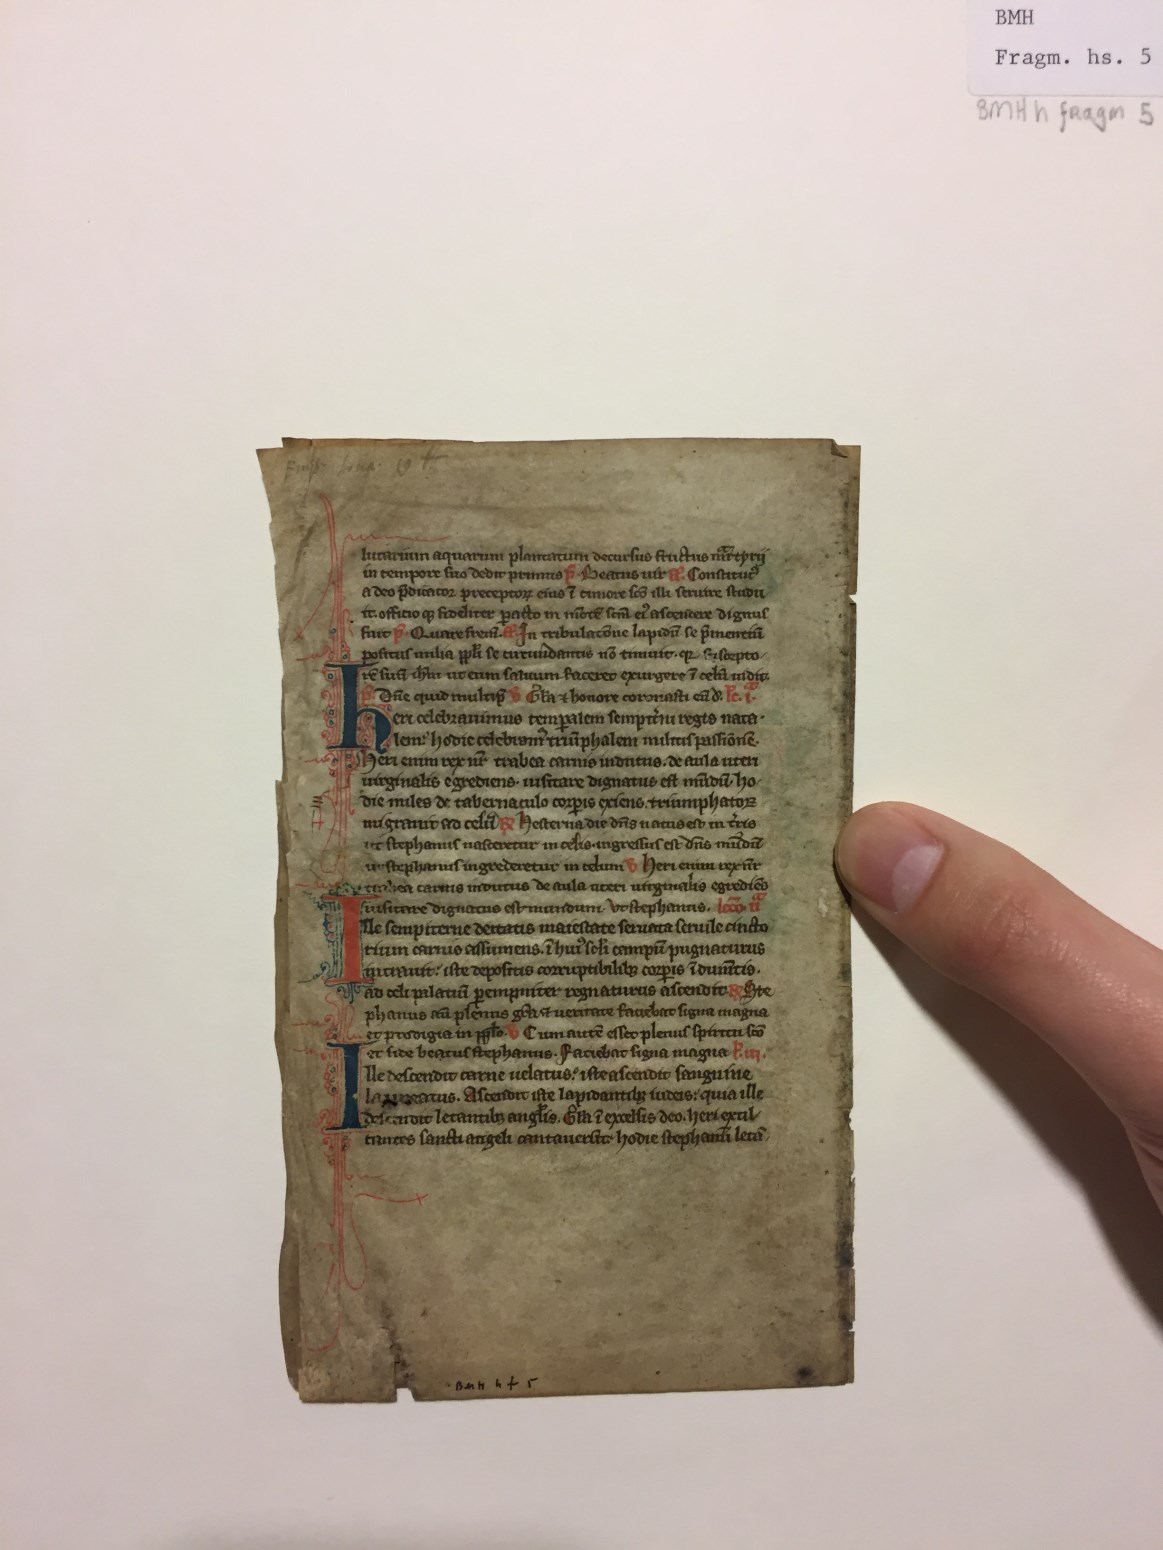 BMH
Fragm. hs. 5
BMH h fragm 5
lutarium aquarum plantatum decursus fructus mr̄tyrij
in tempore suo dedit primus p̄. Beatus uir a͞. Constitut᷒
a deo p̄dicator preceptoꝝ eius ⁊ timore scō illi seruire studu
it. officio qꝫ fideliter in mōte ascendere dignus
fuit p̄. Quare frem̄. a͞ In tribulatōne lapidū se p̄mentiū
positus milia ppl̄i se circūdantis nō timuit. suscepto
rē suū ut eum saluum faceret exurgere ⁊
p̄. Dn̄e quid multip̄ v Gl̄a ⁊ honore coronasti eū d̄. lc̄. i.ᵃ
heri celebrauimus temp̄alem sempit̄ni regis nata
lem: hodie celebram᷒ triūphalem militis passionē.
Heri enim rex nr̄ trabea carnis indutus. de aula uteri
uirginalis egrediens. uisitare dignatus est mūdū. ho
die miles de tabernaculo corp̄is exiens. triumphatoꝛ
migrauit ad celū ꝶ Hesterna die dn̄s natus est in t̄ris
ut stephanus nasceretur in celis. ingressus est dn̄s mūdū
ut stephanus ingrederetur in celum v Heri enim rex nr̄
trabea carnis indutus de aula uteri uirginalis egrediēs
uisitare dignatus est mundum. Vt stephanus. lcc̄o. ii.ᵃ
Ille sempiterne deitatis maiestate seruata seruile cincto
rium carnis assumens. ī hui᷒ scl̄i campū pugnaturus
intrauit: iste depositis corruptibilibꝫ corp̄is
ad celi palatiū p̄hempniter regnaturus ascendit ꝶ Ste
phanus aū plenus gr̄a ⁊ ueritate faciebat signa magna
et prodigia in pp̄lo. v Cum autē esset plenus spiritu scō
et fide beatus stephanus. Faciebat signa magna l̄. iii.
Ille descendit carne uelatus: iste ascendit sanguine
laureatus. Ascendit iste lapidantibꝫ iudeis: quia ille
descendit letantibꝫ angl̄is. Gl̄a ī excelsis deo. heri exul
tantes sancti angeli cantauerūt: hodie stephanū letā
BMH h f 5